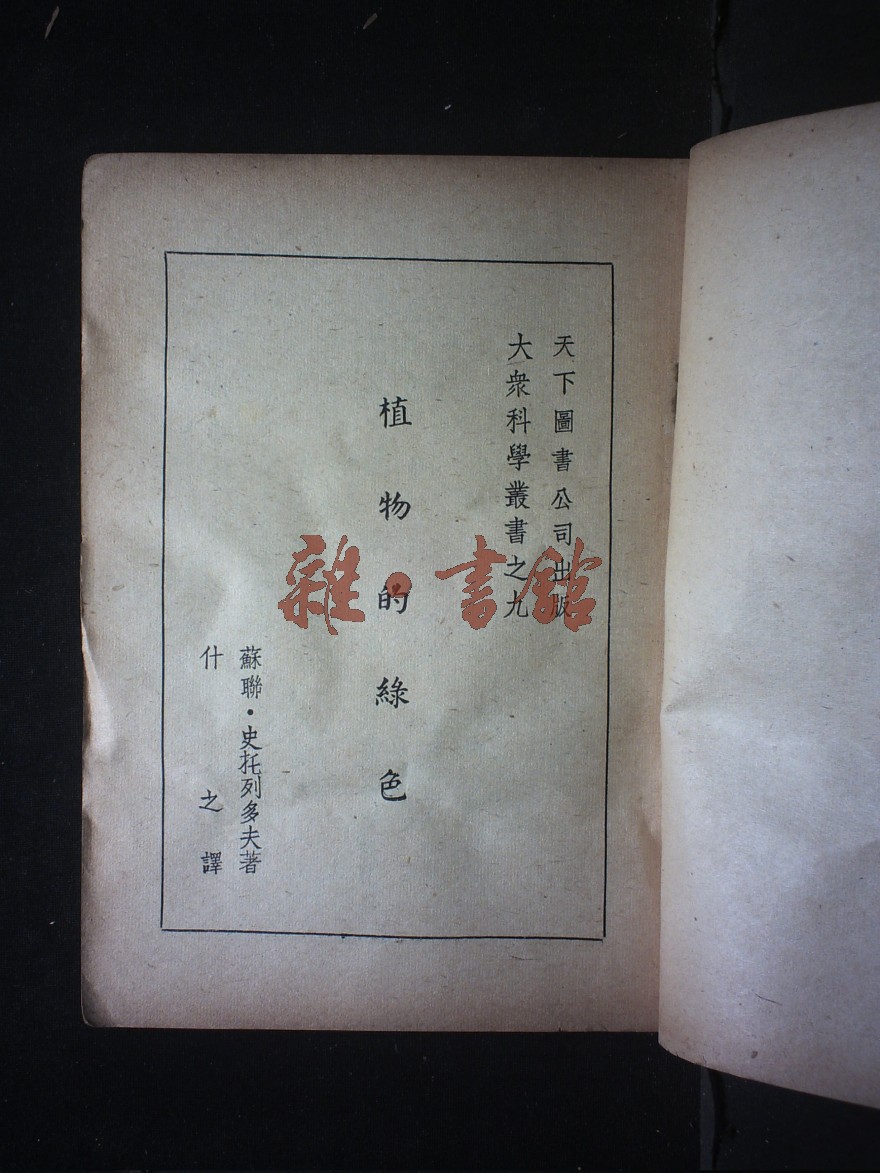 天下圖書公司出版
大衆科學叢書之九
植物的綠色
蘇聯·史托列多夫著
什之譯
雜·書館